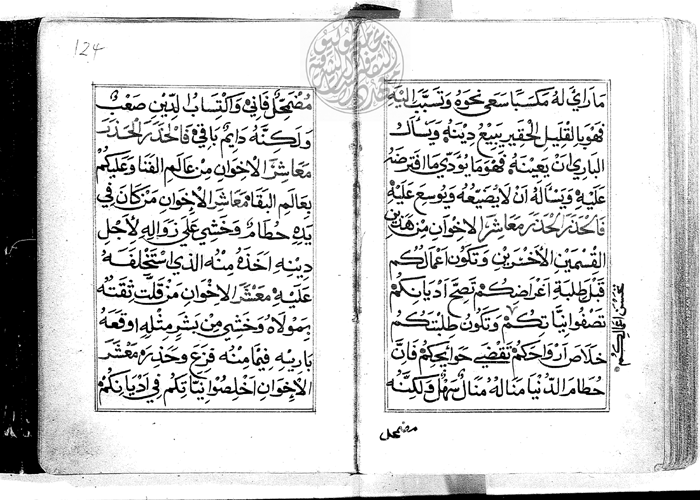 ما رائ له مكسبا سعي نحوه وتسبب اليه
فهو بالقليل الحقير يبيع دينه ويسأل
الباري ان يعينه فهو ما يودي ما افترضه
عليه ويسأله ان لا يضيعه ويوسع عليه
فالحذر الحذر معاشر الاخوان من هذين
القسمين الاخرين وتكون اعمالكم
قبل طلبة اغراضكم تصح اديانكم
تصفوا نياتكم وتكون طلبتكم
خلاص ارواحكم تقضي حوائجكم فان
حطام الدنيا مناله منال سهل ولكنه
تحسن اعمالكم
مضمحل
124
مضمحل فاني واكتساب الدين صعب
ولكنه دايم باقي فالحذر الحذر
معاشر الاخوان من عالم الفنا وعليكم
بعالم البقا معاشر الاخوان من كان في
يده حطام وخشي علي زواله لاجل
دينه اخذه منه الذي استخلفه
عليه معشر الاخوان من قلت ثقته
بمولاه وخشي من بشر مثله اوقعه
باريه فيما منه فزع وحذره معشر
الاخوان اخلصوا نياتكم في اديانكم